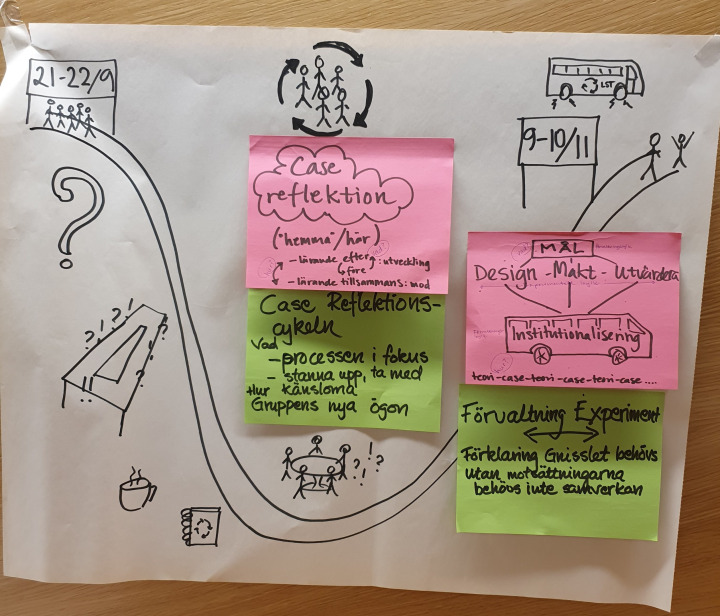 21-22/9
?
LST
9-10/11
Case
reflektion
("hemma"/här)
- lärande efter : utveckling
före
- lärande tillsammans: mod
Case Reflektions-
cykeln
Vad
- processen i fokus
- stanna upp, ta med
Hur känslorna
Gruppens nya ögon
MÅL
Design - Makt - Utvärdera
Institutionalisering
teori-case-teori-case-teori-case....
Förvaltning Experiment
Förklaring Gnisslet behövs
utan motsättningarna
behövs inte samverkan
?!?!
!!
?!
?!?